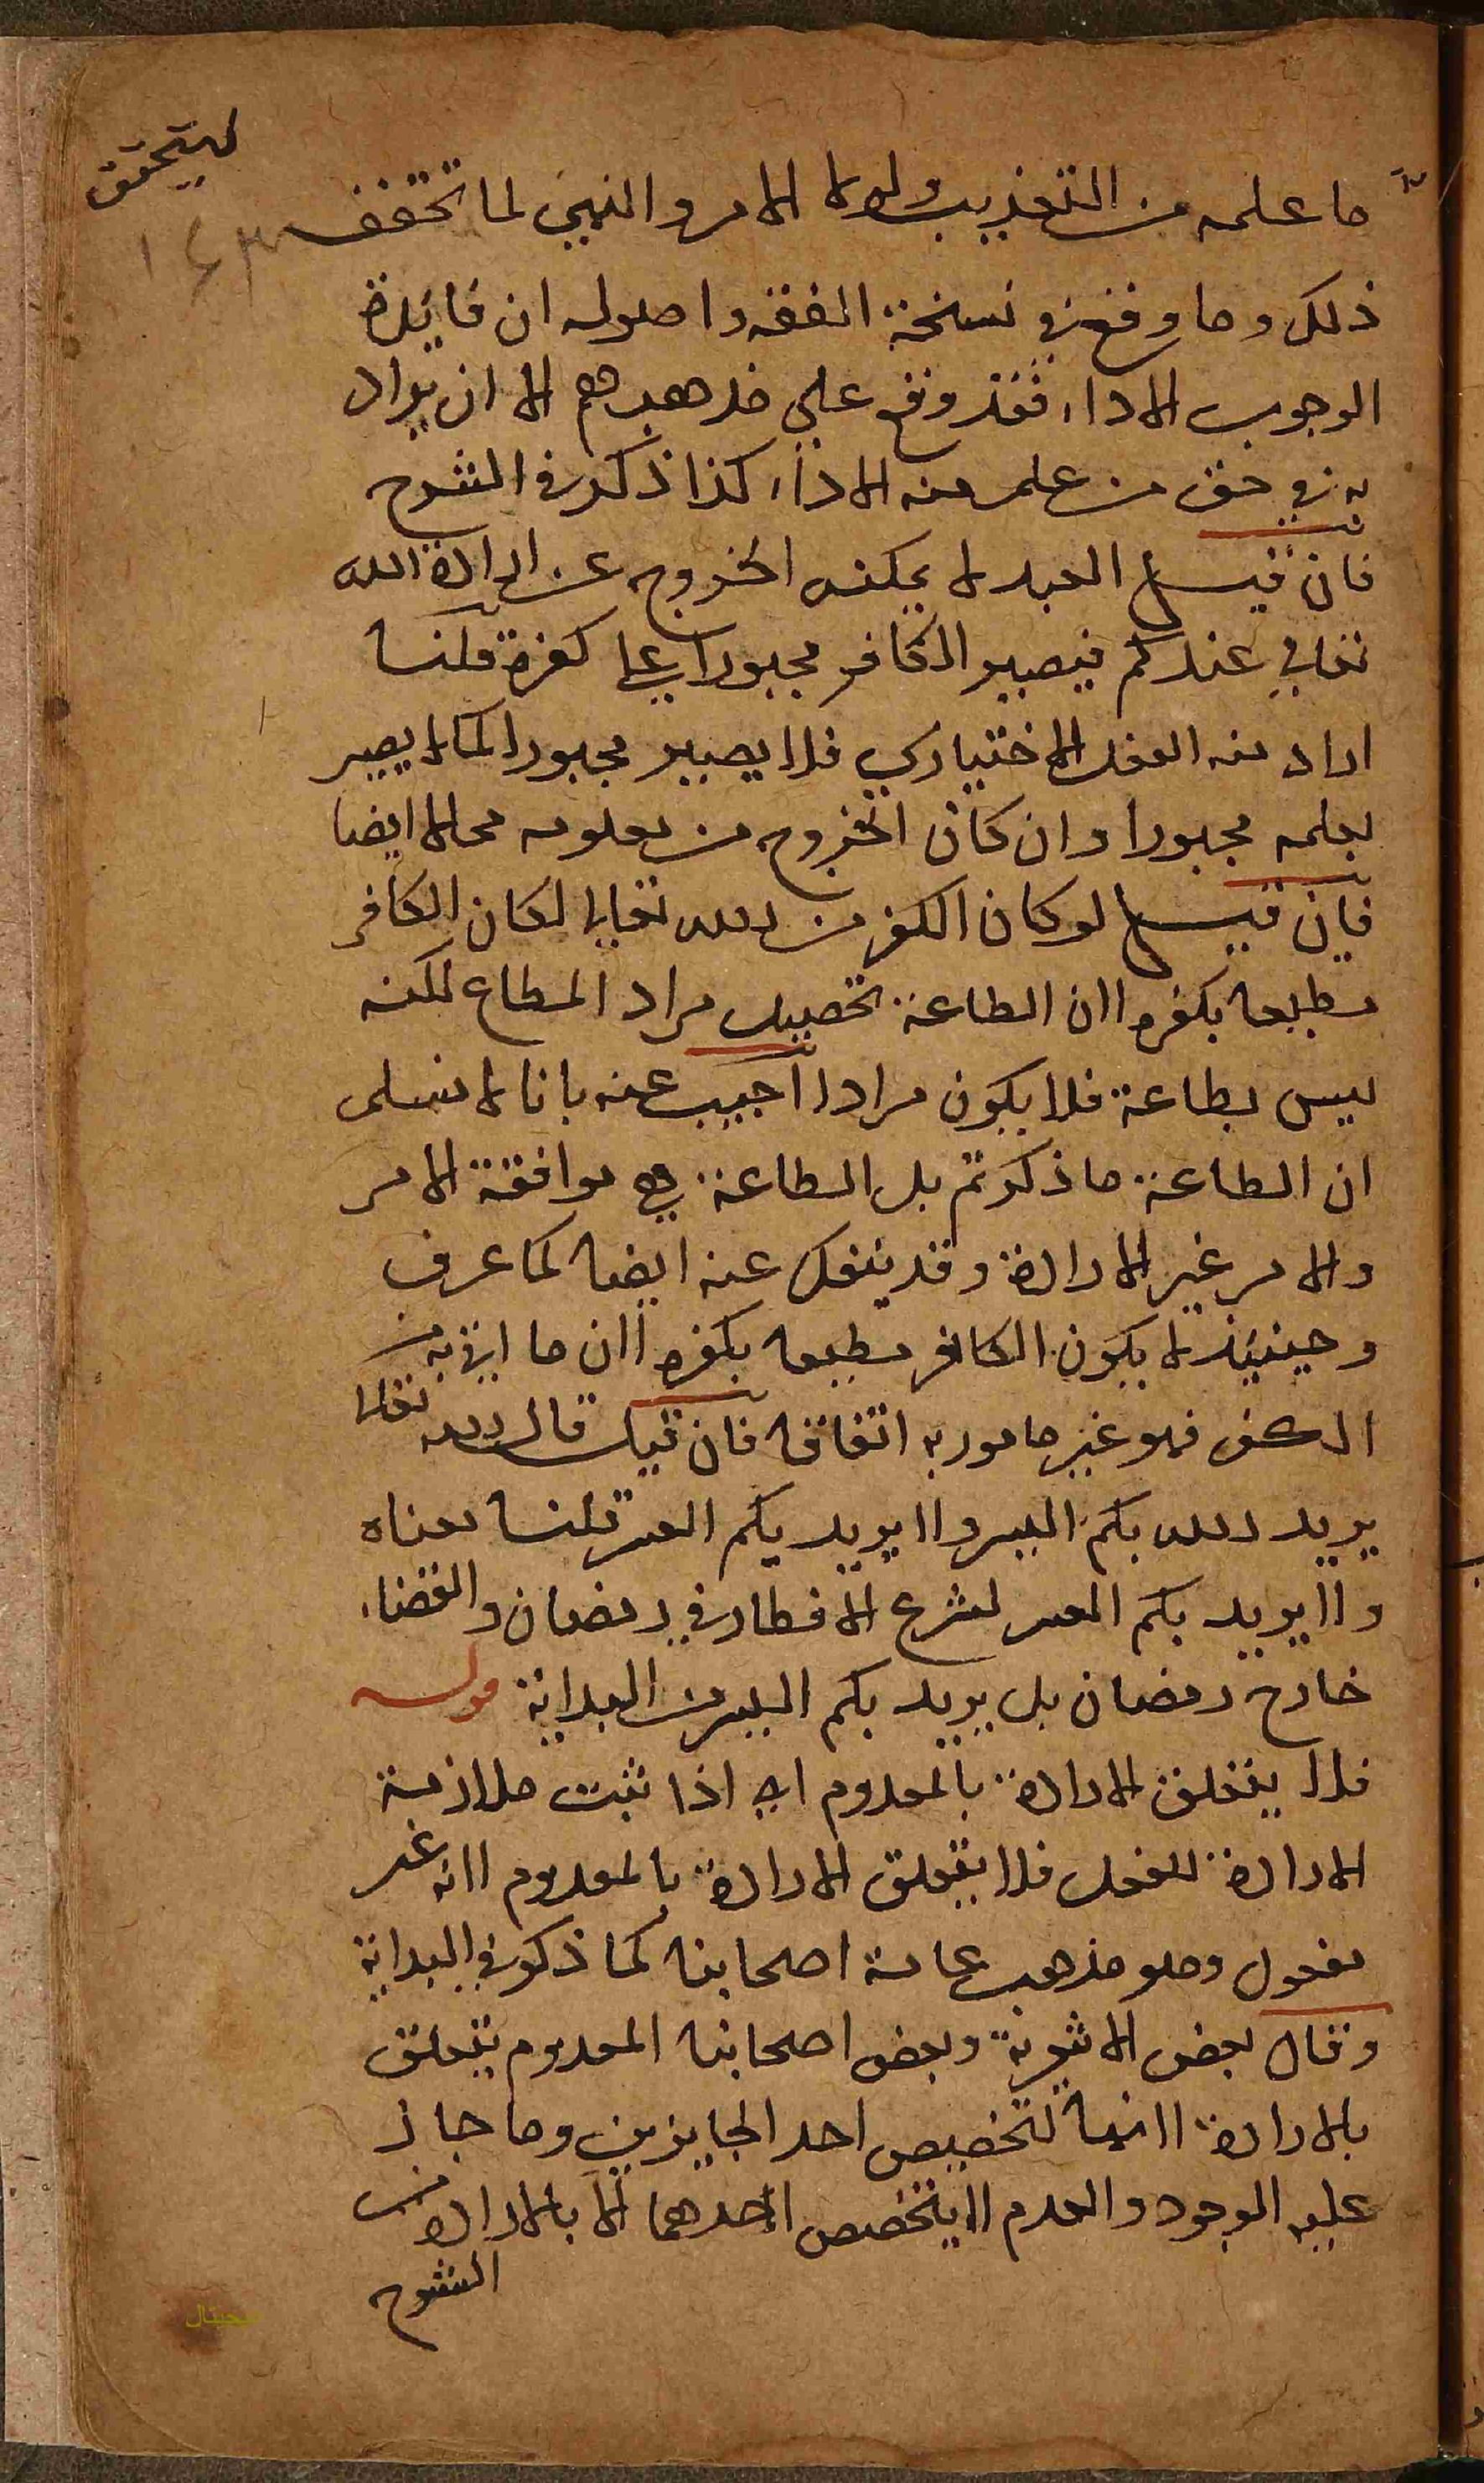 ليتحقق
ما علمه من التعذيب ولولا الامر والنهي لما تحقق
١٤٣
ذلك وما وقع في نسخة الفقه واصوله ان فايدة
الوجوب الاداء فقد وقع علي مذهبهم الا ان يراد
به في حق من علم منه الاداء كذا ذكر في الشرح
فان قيل العبد لا يمكنه الخروج عن ارادة الله
تعالي عندكم فيصير الكافر مجبورا علي كفره قلنا
اراد منه الفعل الاختياري فلا يصير مجبورا كما لا يصير
بعلمه مجبورا وان كان الخروج من معلومه محالا ايضا
فان قيل لو كان الكفر من الله تعالي لكان الكافر
مطيعا بكفره لان الطاعة تحصيل مراد المطاع لكنه
ليس بطاعة فلا يكون مرادا اجيب عنه بانا لا نسلم
ان الطاعة ما ذكرتم بل الطاعة هي موافقة الامر
والامر غير الارادة وقد ينفك عنه ايضا كما عرف
وحينئذ لا يكون الكافر مطيعا بكفره لان ما اتي به من
الكفر فهو غير مامور به اتفاقا فان قيل قال الله تعالي
يريد الله بكم اليسر ولا يريد بكم العسر قلنا معناه
ولا يريد بكم العسر لشرع الافطار في رمضان والقضاء
خارج رمضان بل يريد بكم اليسر من البداية قوله
فلا يتعلق الارادة بالمعدوم اي اذا ثبت ملازمة
الارادة للفعل فلا يتعلق الارادة بالمعدوم لانه غير
مفعول وهو مذهب عامة اصحابنا كما ذكر في البداية
وقال بعض الاشعرية وبعض اصحابنا المعدوم يتعلق
بالارادة لانها لتخصيص احد الجايزين وما جاز
عليه الوجود والعدم لا يتخصص احدهما الا بالارادة من
الشرح